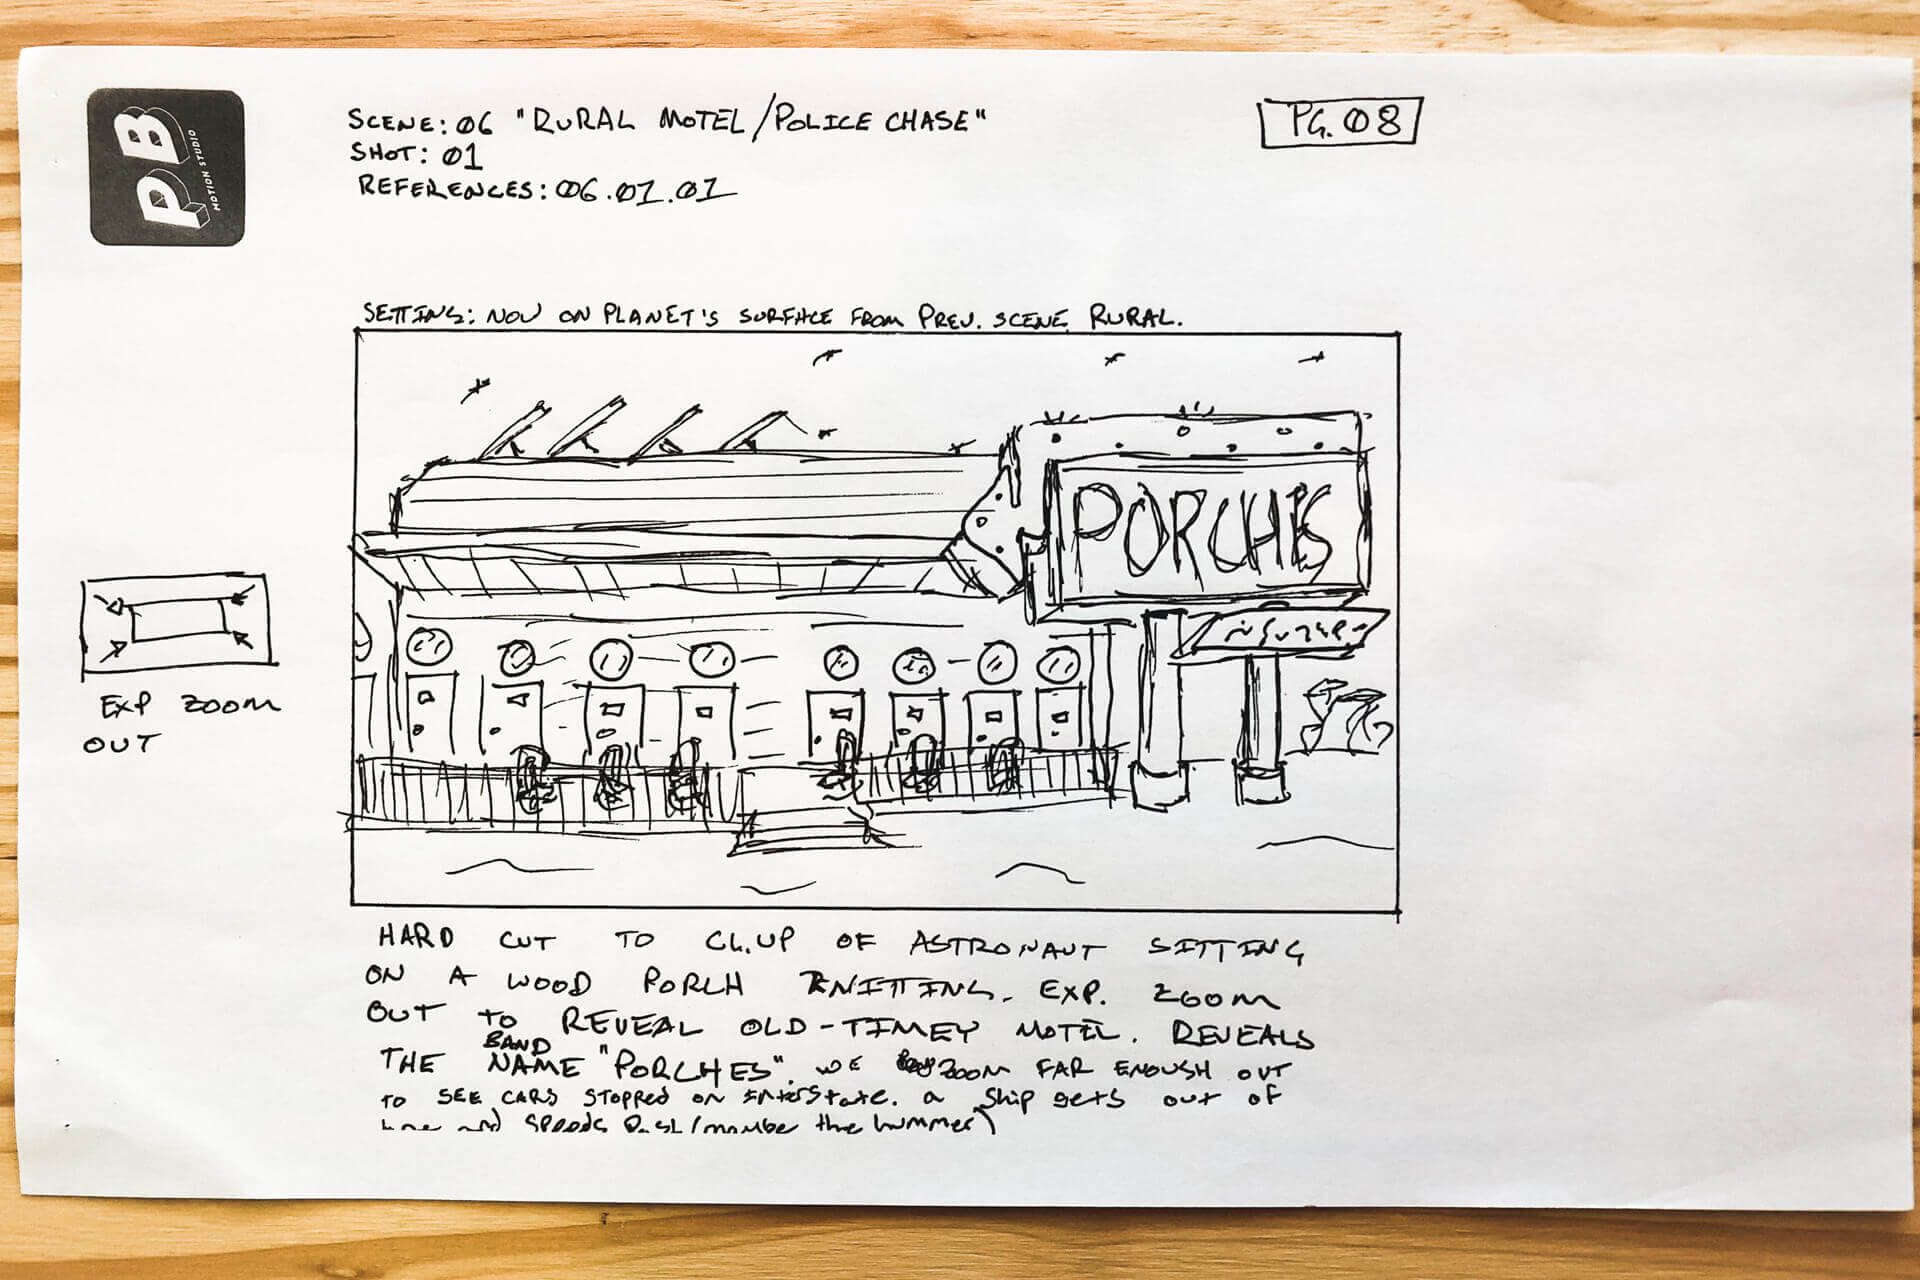 PB
MOTION STUDIO
SCENE: 06 "RURAL MOTEL/POLICE CHASE"
SHOT: 01
REFERENCES: 06.01.01
PG. 08
SETTING: NOW ON PLANET'S SURFACE FROM PREV. SCENE. RURAL.
PORCHES
EXP ZOOM
OUT
HARD CUT TO CL.UP OF ASTRONAUT SITTING
ON A WOOD PORCH KNITTING. EXP. ZOOM
OUT TO REVEAL OLD-TIMEY MOTEL. REVEALS
THE BAND NAME "PORCHES". WE ZOOM FAR ENOUGH OUT
TO SEE CARS STOPPED ON INTERSTATE. A SHIP GETS OUT OF
AND SPEEDS PAST (MAYBE THE HUMMER)